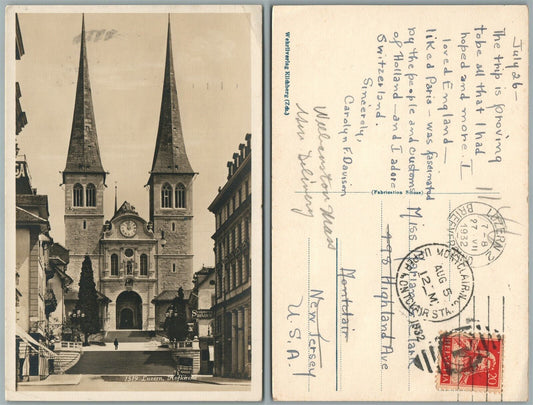 1329 Luzern, Hofkirche
Wehrliverlag Kilchberg (Zch.)
July 26-
The trip is proving
to be all that I had
hoped and more. I
loved England-
liked Paris - was fascinated
by the people and customs
of Holland - and I adore
Switzerland.
Sincerely,
Carolyn F. Davison
(Fabrication Suisse)
Miss
498 Highland Ave
Montclair
New Jersey
U.S.A.
Mass
Delivery
LUZERN 2
27 VII
1932
7-8
BRIEFVERSAND
MONTCLAIR, N.J.
AUG 5
12-M
1932
STA.
20